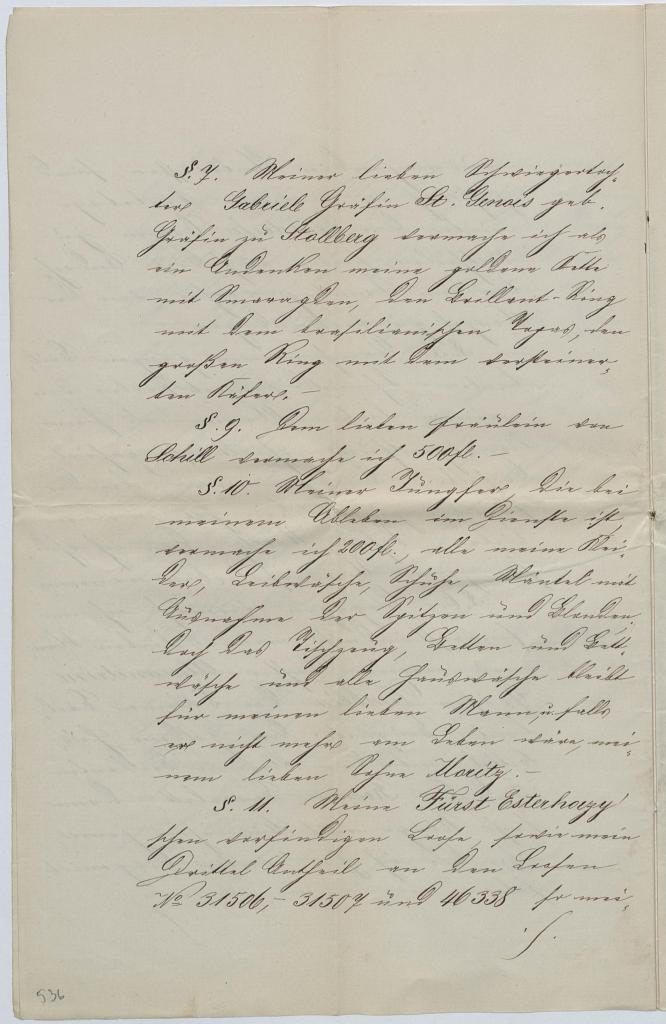 §. 7. Meiner lieben Schwiegertoch-
ter Gabriele Gräfin St. Genois geb.
Gräfin zu Stollberg vermache ich als
ein Andenken meine goldene Kette
mit Smaragden, den Brillant-Ring
mit dem brasilianischen Topas, den
großen Ring mit dem versteiner-
ten Käfer. –
§. 9. Dem lieben Fräulein von
Schill vermache ich 500 fl. –
§. 10. Meiner Jungfer, die bei
meinem Ableben im Dienste ist,
vermache ich 200 fl., alle meine Klei-
der, Leibwäsche, Schuhe, Mäntel mit
Ausnahme der Spitzen und Blonden.
Doch das Tischzeug, Betten und Bett-
wäsche und alle Hauswäsche bleibt
für meinen lieben Mann, u. falls
er nicht mehr am Leben wäre, mei-
nem lieben Sohne Moritz. –
§. 11. Meine Fürst Esterhazy'
schen vorfindigen Loose, sowie mein
Drittel Antheil an den Loosen
No 31506, – 31507 und 46338 so mei-
./.
936